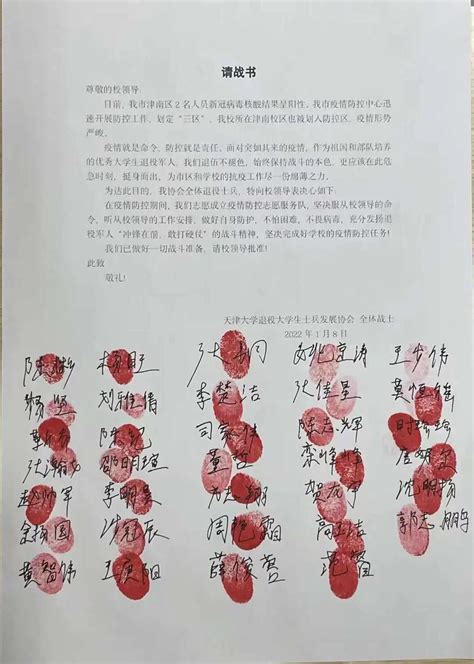 请战书
尊敬的校领导:
目前,我市津南区2名人员新冠病毒核酸结果呈阳性。我市疫情防控中心迅
速开展防控工作,划定“三区”,我校所在津南校区也被划入防控区,疫情形势
严峻。
疫情就是命令,防控就是责任,面对突如其来的疫情,作为祖国和部队培养
的优秀大学生退役军人,我们退伍不褪色,始终保持战斗的本色,更应该在此危
急时刻,挺身而出,为市区和学校的抗疫工作尽一份绵薄之力。
为达此目的,我协会全体退役士兵,特向校领导表决心如下:
在疫情防控期间,我们志愿成立疫情防控志愿服务队,坚决服从校领导的命
令,听从校领导的工作安排,做好自身防护,不怕困难,不畏病毒,充分发扬退
役军人“冲锋在前,敢打硬仗”的战斗精神,坚决完成好学校的疫情防控任务!
我们已做好一切战斗准备,请校领导批准!
此致
敬礼!
天津大学退役大学生士兵发展协会 全体战士
2022年1月8日
杨旺 张桐 王少伟
李梦洁 张佳星 莫恒健
陈志辉
张瀚文 邵明瑄 董哲 栾峰峰
赵帅军 孟翔 贺庆宇 沈明扬
金扬国 洪冠辰 周艳霜 高玉洁 郭志鹏
黄智伟 王庚阳 薛俊营 范